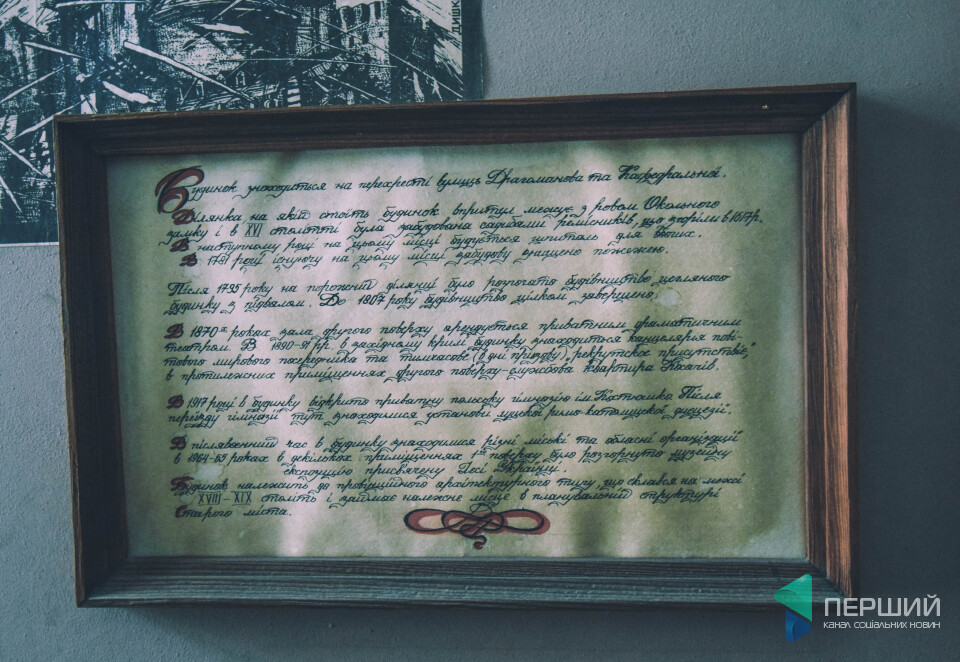 ДИШК
Будинок знаходиться на перехресті вулиць Драгоманова та Кафедральної.
Ділянка на якій стоїть будинок впритул межує з ровом Окольного
замку і в XVI столітті була забудована садибами ремісників, що згоріли в 1617р.
В наступному році на цьому місці будується шпиталь для бідних.
В 1781 році існуючу на цьому місці забудову знищено пожежею.
Після 1795 року на порожній ділянці було розпочато будівництво цегляного
будинку з підвалом. До 1807 року будівництво цілком завершено.
В 1870х роках зала другого поверху орендується приватним драматичним
театром. В 1890-91 рр. в західному крилі будинку знаходиться канцелярія пові-
тового мирового посередника та тимчасове (в дні призову) „рекрутское присутствие",
в протилежних приміщеннях другого поверху-службова квартира
В 1917 році в будинку відкрито приватну польську гімназію ім. Костюшка. Після
переїзду гімназії тут знаходилися установи луцької римо-католицької дієцезії.
В післявоєнний час в будинку знаходилися різні міські та обласні організації
в 1964-65 роках в декількох приміщеннях 1го поверху було розгорнуто музейну
експозицію присвячену Лесі Українці.
Будинок належить до провінційного архітектурного типу, що склався на межі
XVIII-XIX століть і займає належне місце в планувальній структурі
Старого міста.
ПЕРШИЙ
КАНАЛ СОЦІАЛЬНИХ НОВИН